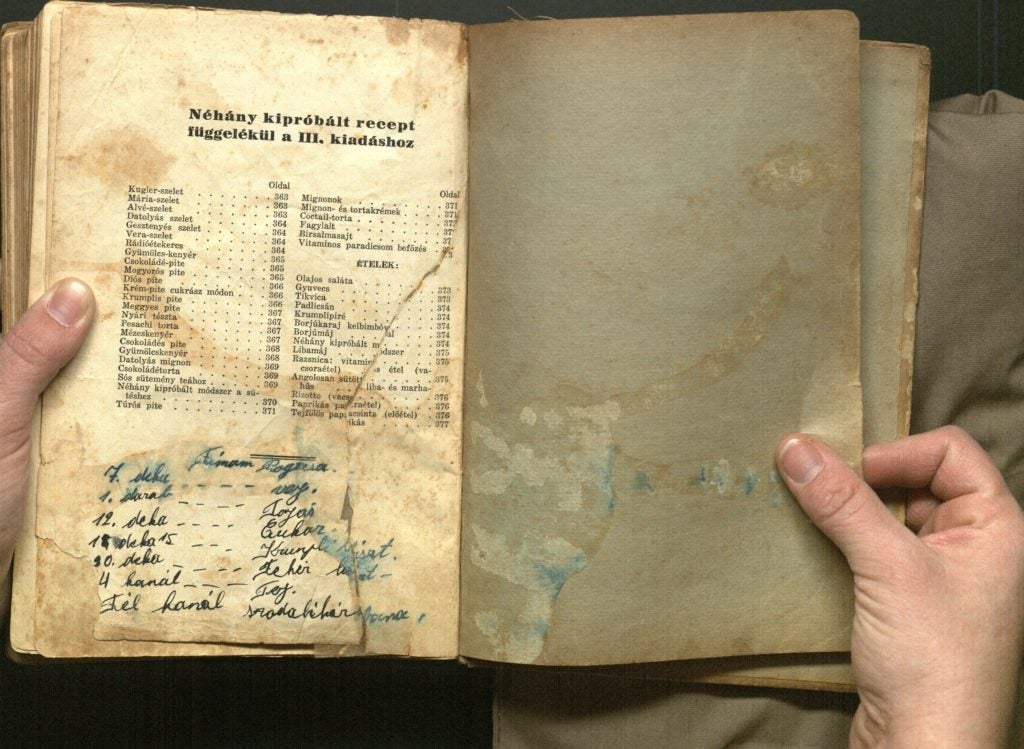 Néhány kipróbált recept
függelékül a III. kiadáshoz
Oldal
Kugler-szelet 363
Mária-szelet 363
Alvé-szelet 363
Datolyás szelet 364
Gesztenyés szelet 364
Vera-szelet 364
Rádióétekercs 364
Gyümölcs-kenyér 365
Csokoládé-pite 365
Mogyorós pite 365
Diós pite 366
Krém-pite cukrász módon 366
Krumplis pite 366
Meggyes pite 367
Nyári tészta 367
Pesachi torta 367
Mézeskenyér 367
Csokoládés pite 368
Gyümölcskenyér 368
Datolyás mignon 369
Csokoládétorta 369
Sós sütemény teához 369
Néhány kipróbált módszer a sü-
téshez 370
Túrós pite 371
Oldal
Mignonok 371
Mignon- és tortakrémek 371
Coctail-torta
Fagylalt
Birsalmasajt
Vitaminos paradicsom befőzés
ÉTELEK:
Olajos saláta 373
Gyuvecs 373
Tikvica 374
Padlicsán 374
Krumplipiré 374
Borjúkaraj kelbimbóv 374
Borjúmáj
Néhány kipróbált 375
Libamáj 375
Razsnica: vitamin s étel (va-
csoraétel) 375
Angolosan sütött liba- és marha-
hús 376
Rizottó (vacs raétel) 376
Paprikás csinta (előétel) 376
Tejfölös pap rikás 377
7. deka
vaj.
1. darab
Tojás
12. deka
Cukor
15
30. deka
Fehér
4 kanál
Tej.
Fél kanál